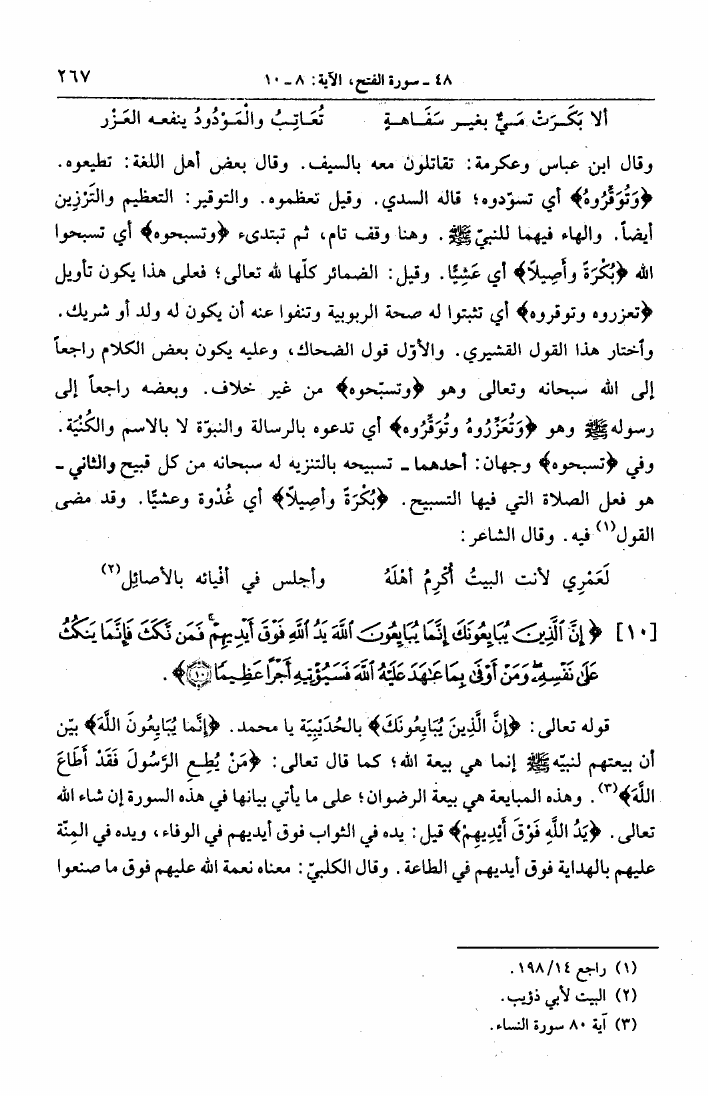 ٤٨ ـ سورة الفتح، الآية: ٨ ـ ١٠
٢٦٧
ألا بَكَـرَتْ مَـيٌّ بغيـر سَفَـاهـةٍ تُعَـاتِـبُ والْمَـوْدُودُ ينفعـه العَـزْر
وقال ابن عباس وعكرمة: تقاتلون معه بالسيف. وقال بعض أهل اللغة: تطيعوه.
﴿وَتُوَقِّرُوهُ﴾ أي تسوّدوه؛ قاله السدي. وقيل تعظموه. والتوقير: التعظيم والتَّرْزِين
أيضاً. والهاء فيهما للنبيّ ﷺ. وهنا وقف تام، ثم تبتدىء ﴿وتسبحوه﴾ أي تسبحوا
الله ﴿بُكْرَةً وأَصِيلاً﴾ أي عَشِيًّا. وقيل: الضمائر كلّها لله تعالى؛ فعلى هذا يكون تأويل
﴿تعزروه وتوقروه﴾ أي تثبتوا له صحة الربوبية وتنفوا عنه أن يكون له ولد أو شريك.
وأختار هذا القول القشيري. والأوّل قول الضحاك، وعليه يكون بعض الكلام راجعاً
إلى الله سبحانه وتعالى وهو ﴿وتسبّحوه﴾ من غير خلاف. وبعضه راجعاً إلى
رسوله ﷺ وهو ﴿وَتُعَزِّرُوهُ وتُوَقِّرُوه﴾ أي تدعوه بالرسالة والنبوّة لا بالاسم والكُنْيَة.
وفي ﴿تسبحوه﴾ وجهان: أحدهما ـ تسبيحه بالتنزيه له سبحانه من كل قبيح والثاني ـ
هو فعل الصلاة التي فيها التسبيح. ﴿بُكْرَةً وأَصِيلاً﴾ أي غُدْوة وعشيًّا. وقد مضى
القول(١) فيه. وقال الشاعر:
لَعَمْرِي لأنت البيتُ أُكْرِمُ أهْلَهُ وأجلس في أفْيائه بالأصائِل(٢)
[١٠] ﴿إِنَّ ٱلَّذِينَ يُبَايِعُونَكَ إِنَّمَا يُبَايِعُونَ ٱللَّهَ يَدُ ٱللَّهِ فَوْقَ أَيْدِيهِمْ ۚ فَمَن نَّكَثَ فَإِنَّمَا يَنكُثُ
عَلَىٰ نَفْسِهِۦ ۖ وَمَنْ أَوْفَىٰ بِمَا عَٰهَدَ عَلَيْهُ ٱللَّهَ فَسَيُؤْتِيهِ أَجْرًا عَظِيمًا ١٠﴾.
قوله تعالى: ﴿إِنَّ الَّذِينَ يُبَايِعُونَكَ﴾ بالحُدَيْبِيَة يا محمد. ﴿إِنَّمَا يُبَايِعُونَ اللَّهَ﴾ بيّن
أن بيعتهم لنبيّه ﷺ إنما هي بيعة الله؛ كما قال تعالى: ﴿مَنْ يُطِعِ الرَّسُولَ فَقَدْ أَطَاعَ
اللَّهَ﴾(٣). وهذه المبايعة هي بيعة الرضوان؛ على ما يأتي بيانها في هذه السورة إن شاء الله
تعالى. ﴿يَدُ اللَّهِ فَوْقَ أَيْدِيهِمْ﴾ قيل: يده في الثواب فوق أيديهم في الوفاء، ويده في المِنّة
عليهم بالهداية فوق أيديهم في الطاعة. وقال الكلبيّ: معناه نعمة الله عليهم فوق ما صنعوا
(١) راجع ١٩٨/١٤.
(٢) البيت لأبي ذؤيب.
(٣) آية ٨٠ سورة النساء.